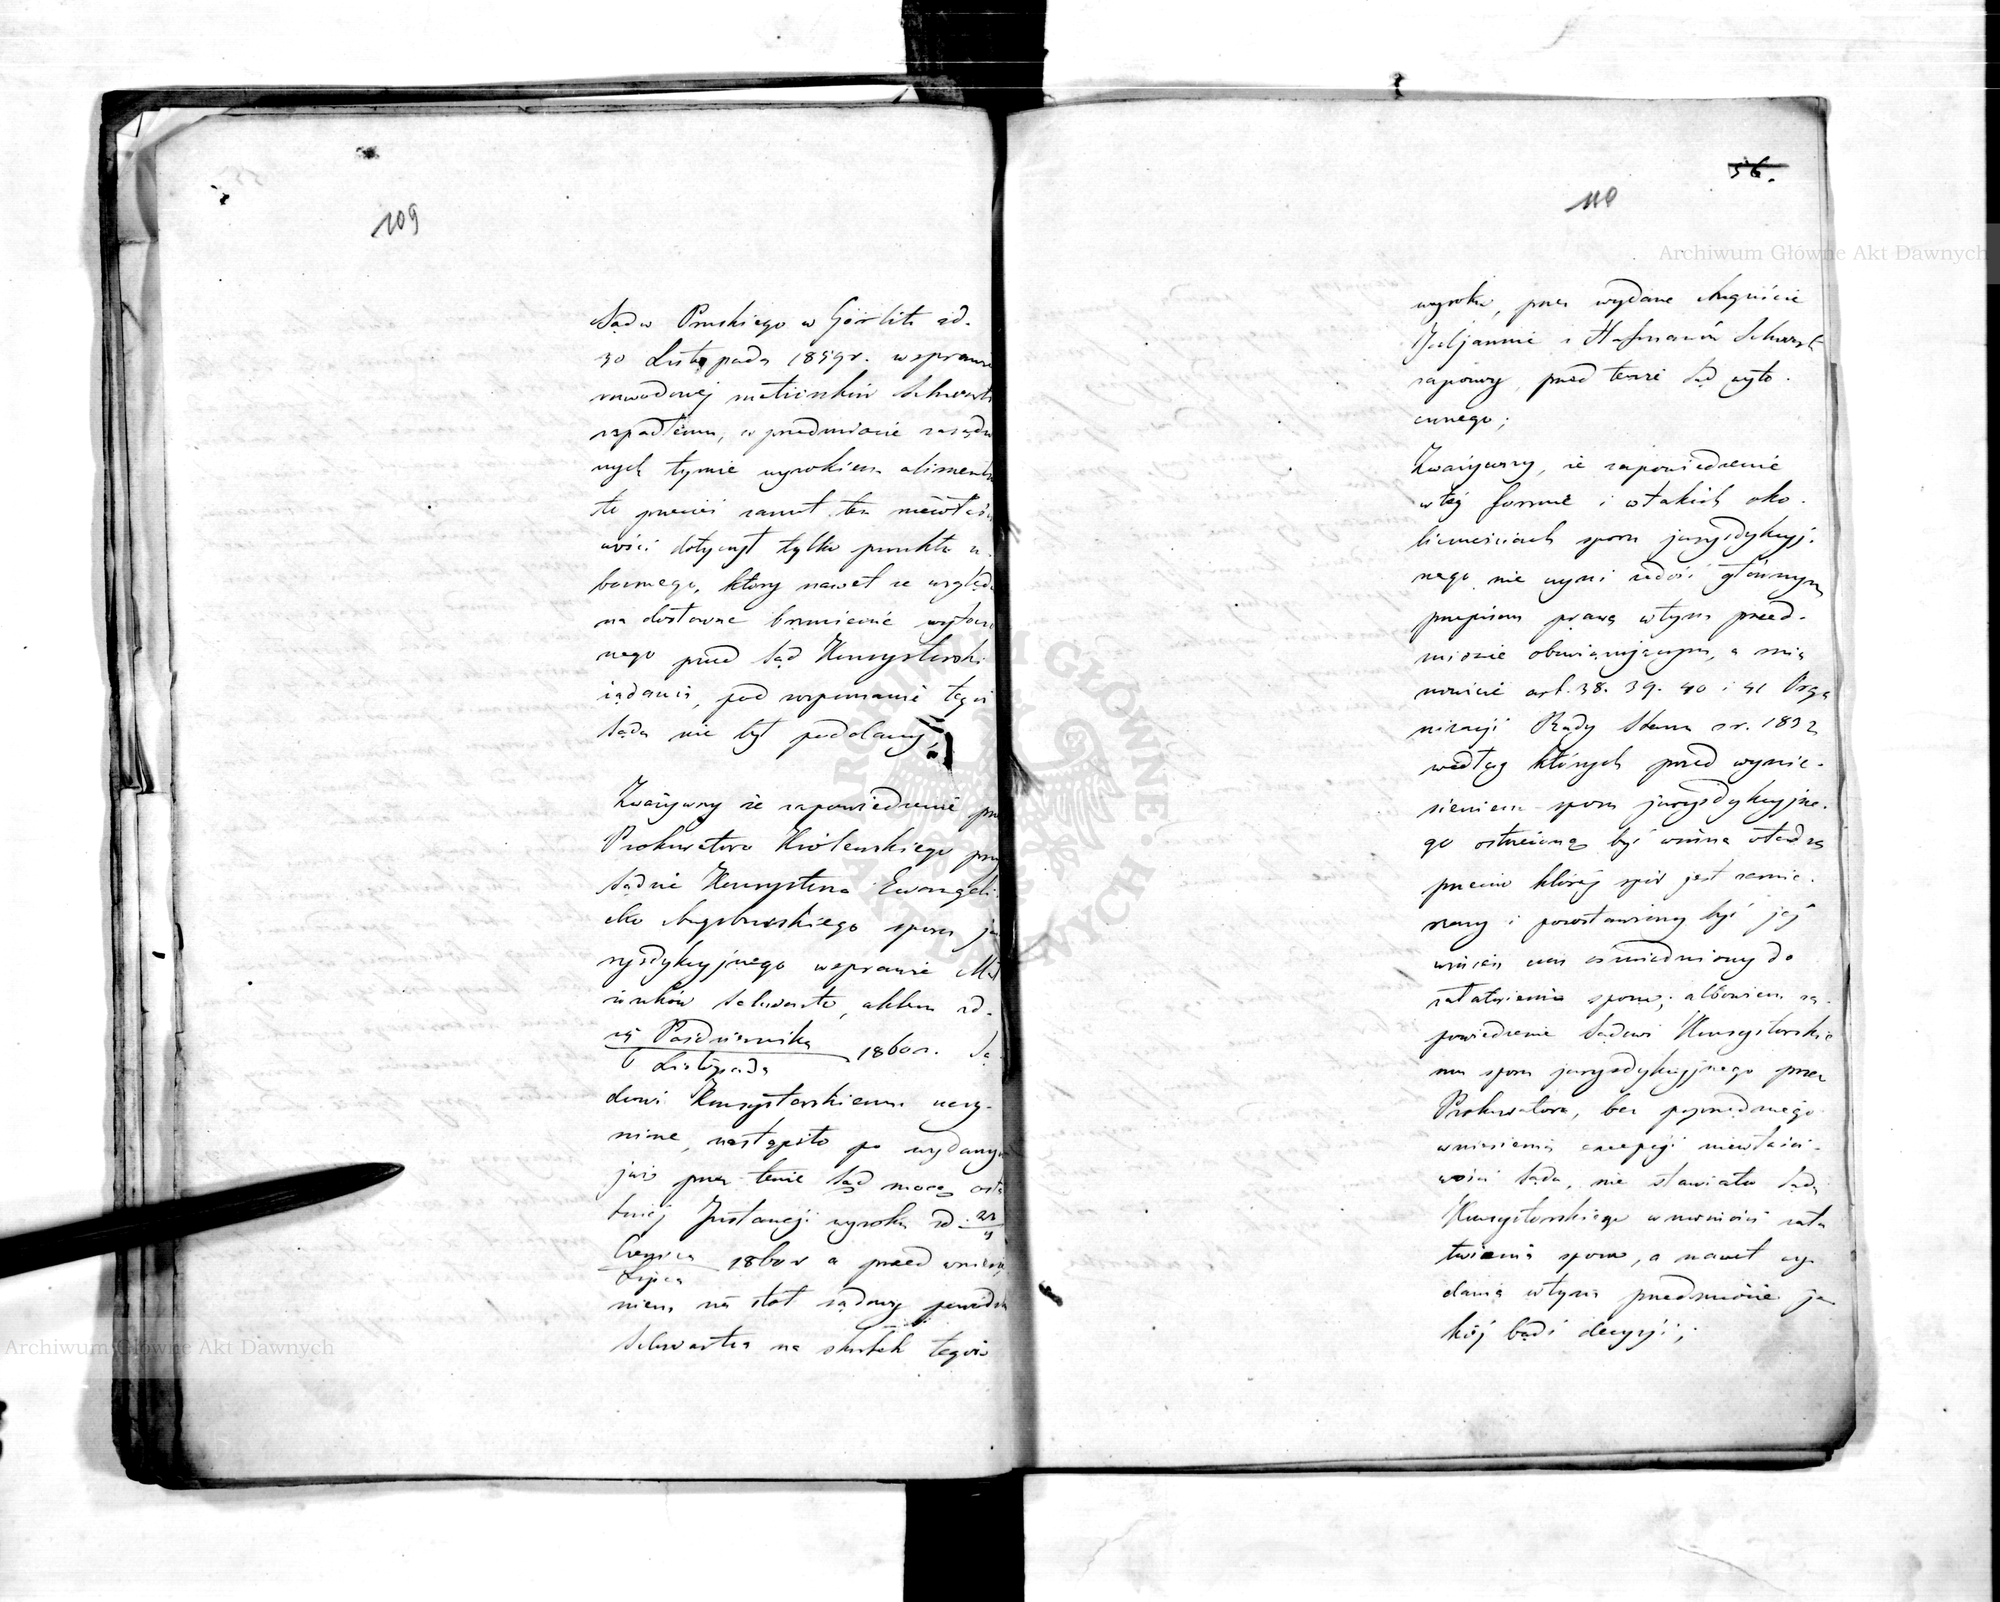 109
Sądu Pruskiego w Görlitz z d.
30 Listopada 1859 r. w sprawie
rozwodowej małżonków Schwartz
zapadłemu, w przedmiocie zasądzo
nych tymże wyrokiem alimentów
to przecież zarzut ten niewłaś
wości dotyczył tylko punktu u
bocznego, który nawet ze względu
na dosłowne brzmienie wytoczo
nego przed Sąd Konsystorski
żądania, pod rozpoznanie tegoż
Sądu nie był poddany;
Zważywszy że zapowiedzenie prze
Prokuratora Królewskiego przy
Sądzie Konsystorza Ewangeli
cko Augsburskiego sporu ju
rysdykcyjnego w sprawie Mał
żonków Schwartz, aktem z d.
Października
6 Listopada 1860 r. Są
dowi Konsystorskiemu uczy-
nione, nastąpiło po wydanym
już przez tenże Sąd mocą osta
tniej Instancji wyroku z d.
Czerwca
Lipca 1860 r a przed wniesie
niem na stół sądowy powództwa
Schwartza na skutek tegoż
56.
110
wyroku, przez wydane Auguście
Juljannie i Schwartz
zapozwy, przed tenże Sąd wyto-
czonego;
Zważywszy, że zapowiedzenie
w tej formie i w takich oko-
licznościach sporu jurysdykcyj-
nego nie czyni zadość głównym
przepisom prawa w tym przed-
miocie obowiązującym, a mia
nowicie art. 38. 39. 40 i 41 Orga
nizacji Rady Stanu z r. 1832
według których przed wynie-
sieniem sporu jurysdykcyjne-
go ostrzeżoną być winna władza
przeciw której spór jest zamie-
rzony i pozostawiony być jej
winien czas do
załatwienia sporu; albowiem za-
powiedzenie Sądowi Konsystorskie
mu sporu jurysdykcyjnego przez
Prokuratora, bez poprzedniego
wniesienia excepcji niewłaści-
wości Sądu, nie stawiało Sądu
Konsystorskiego w możności zała
twienia sporu, a nawet wy-
dania w tym przedmiocie ja-
kiej bądź decyzji;
Archiwum Główne Akt Dawnych
Archiwum Główne Akt Dawnych